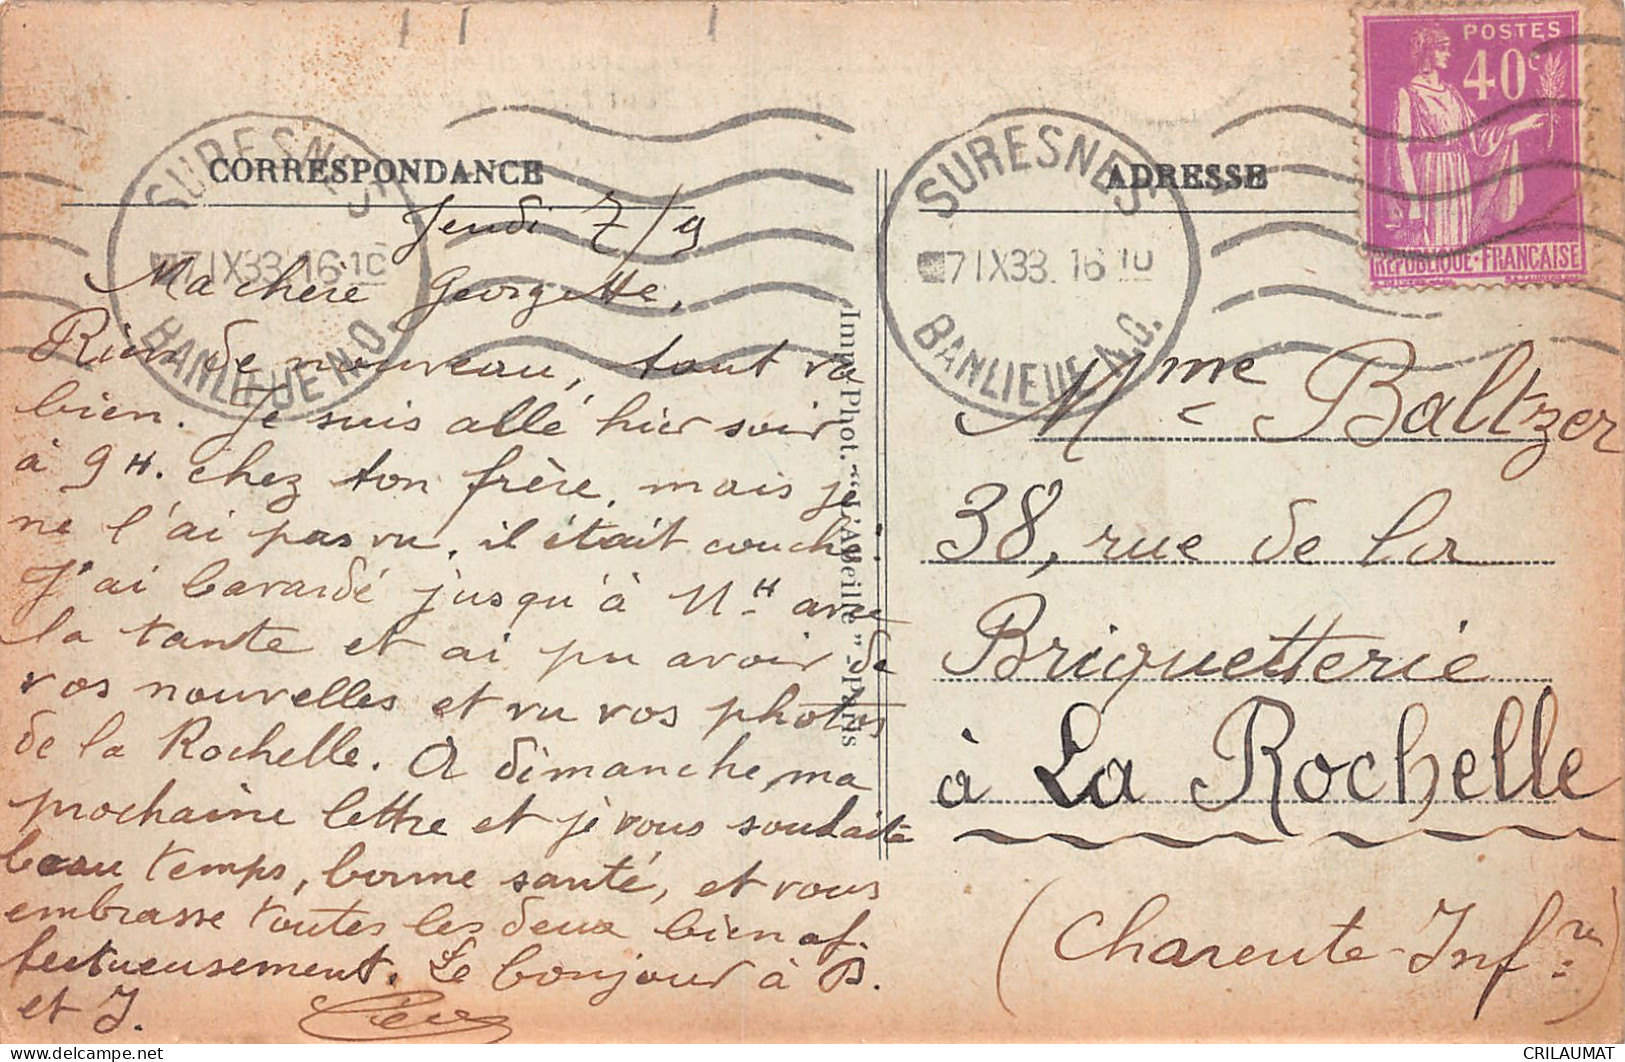 CORRESPONDANCE
SURESNES
7 IX 33. 16 10
BANLIEUE N.O.
Jeudi 7/9
Ma chère Georgette,
Rien de nouveau, tout va
bien. Je suis allé hier soir
à 9 H. chez ton frère, mais je
ne l'ai pas vu, il était couché.
J'ai bavardé jusqu'à 11 H avec
la tante et ai pu avoir de
vos nouvelles et vu vos photos
de la Rochelle. A dimanche, ma
prochaine lettre et je vous souhaite
beau temps, bonne santé, et vous
embrasse toutes les deux bien af-
fectueusement. Le bonjour à B.
et J.
Imp. Phot. "L'Abeille" - Paris
ADRESSE
SURESNES
7 IX 33. 16 10
BANLIEUE N.O.
POSTES
40c
REPUBLIQUE-FRANÇAISE
Mme Baltzer
38, rue de la
Briquetterie
à La Rochelle
(Charente-Infre)
CRILAUMAT